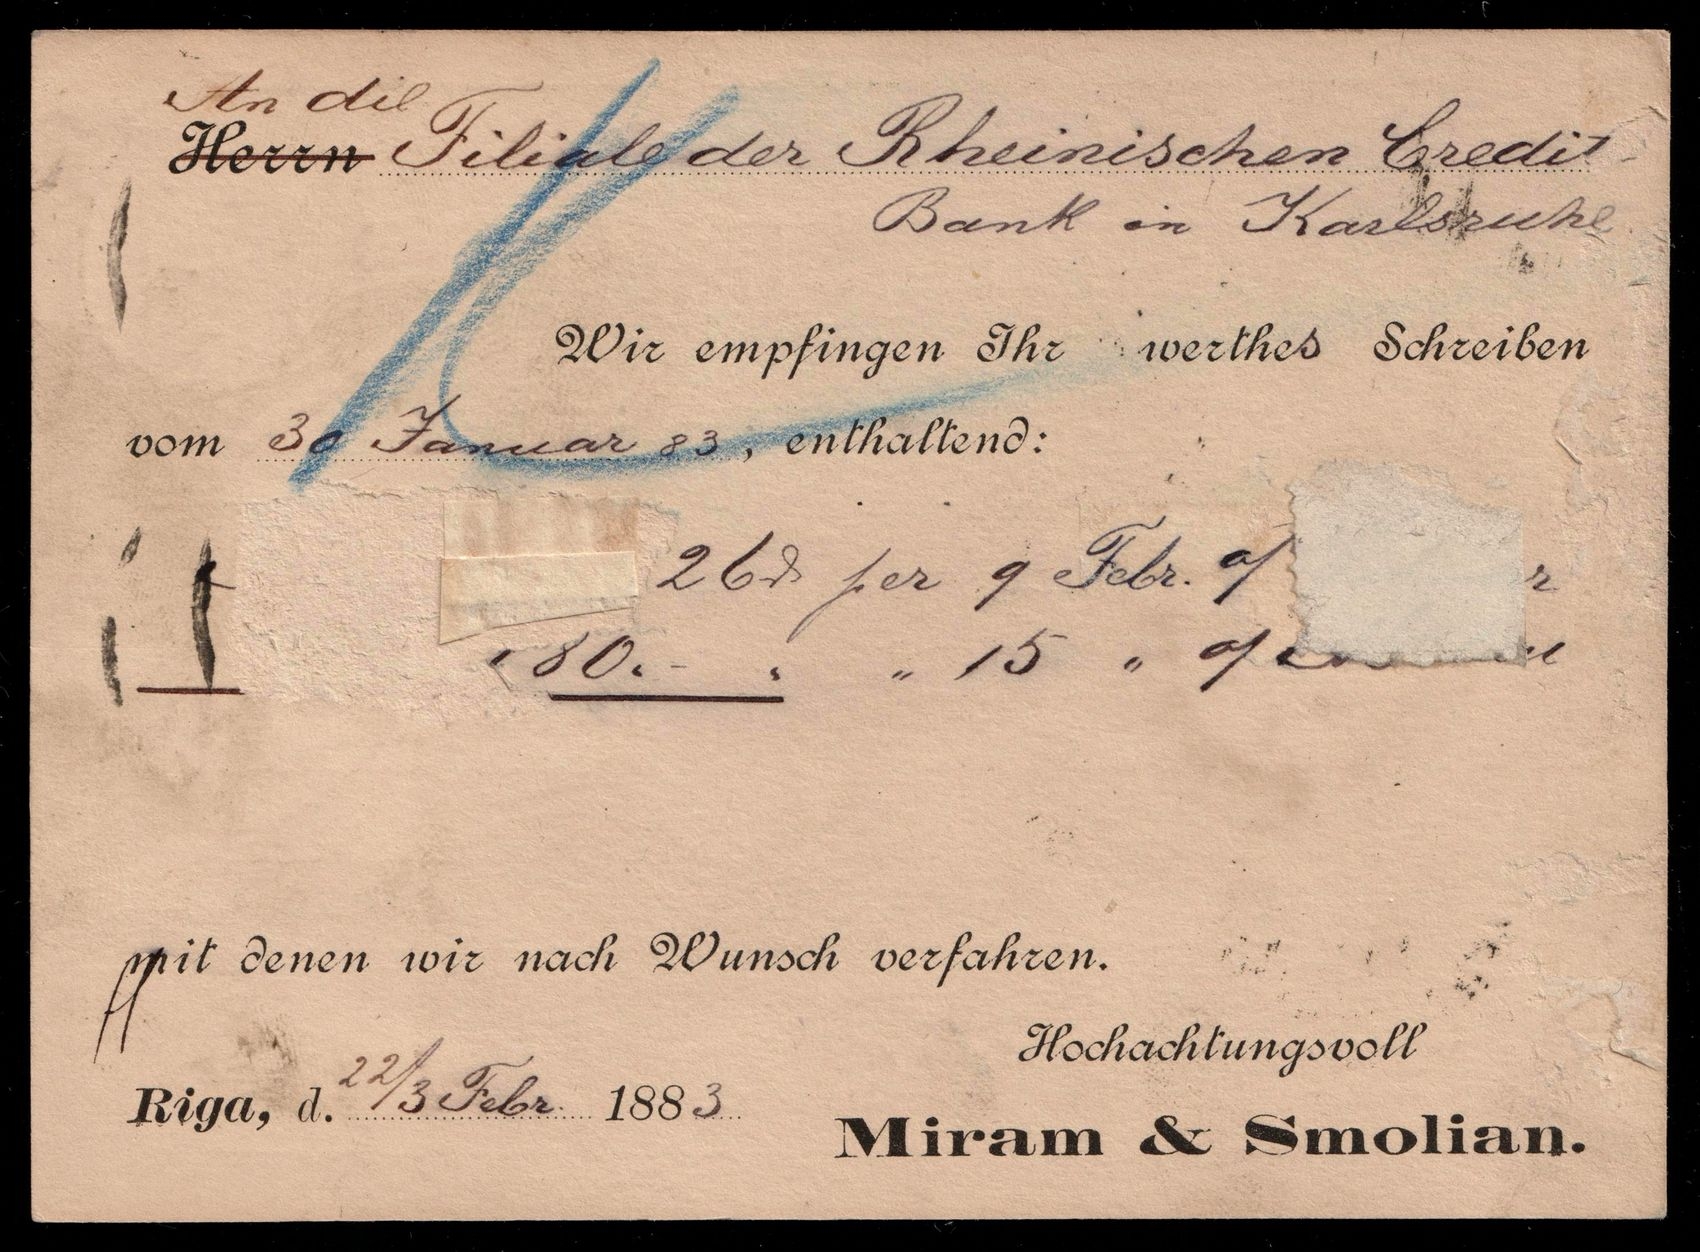 An die
Herrn Filiale der Rheinischen Credit-
Bank in Karlsruhe
Wir empfingen Ihr werthes Schreiben
vom 30 Januar 83, enthaltend:
26 per 9 Febr. a/
80.- " " 15 " a/
mit denen wir nach Wunsch verfahren.
Hochachtungsvoll
Riga, d. 22/3 Febr. 1883
Miram & Smolian.